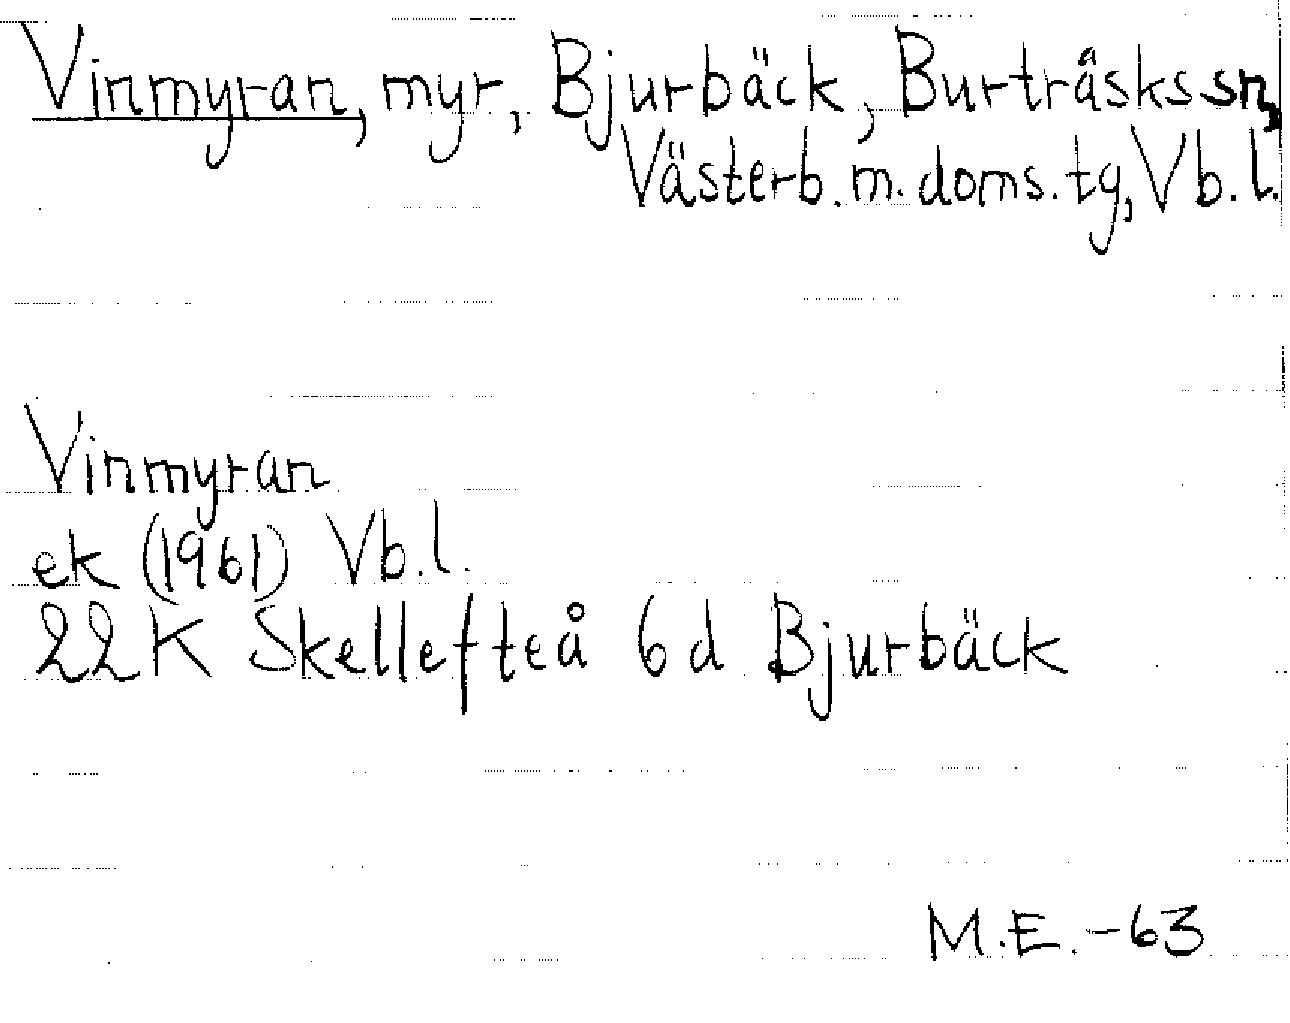 Vinmyran, myr, Bjurbäck, Burträsks sn,
Västerb. m. doms. tg, Vb. l.
Vinmyran
ek (1961) Vb. l.
22K Skellefteå 6d Bjurbäck
M.E. -63